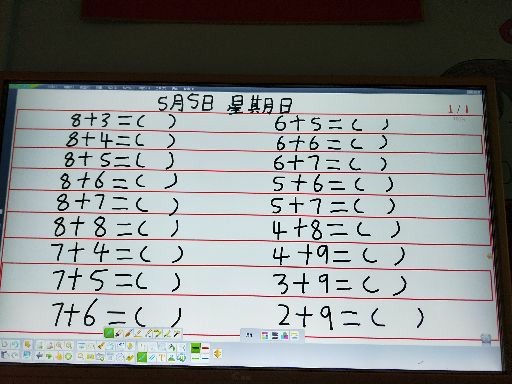 5月5日 星期月日
1/1
8+3=( ) 6+5=( )
8+4=( ) 6+6=( )
8+5=( ) 6+7=( )
8+6=( ) 5+6=( )
8+7=( ) 5+7=( )
8+8=( ) 4+8=( )
7+4=( ) 4+9=( )
7+5=( ) 3+9=( )
7+6=( ) 2+9=( )